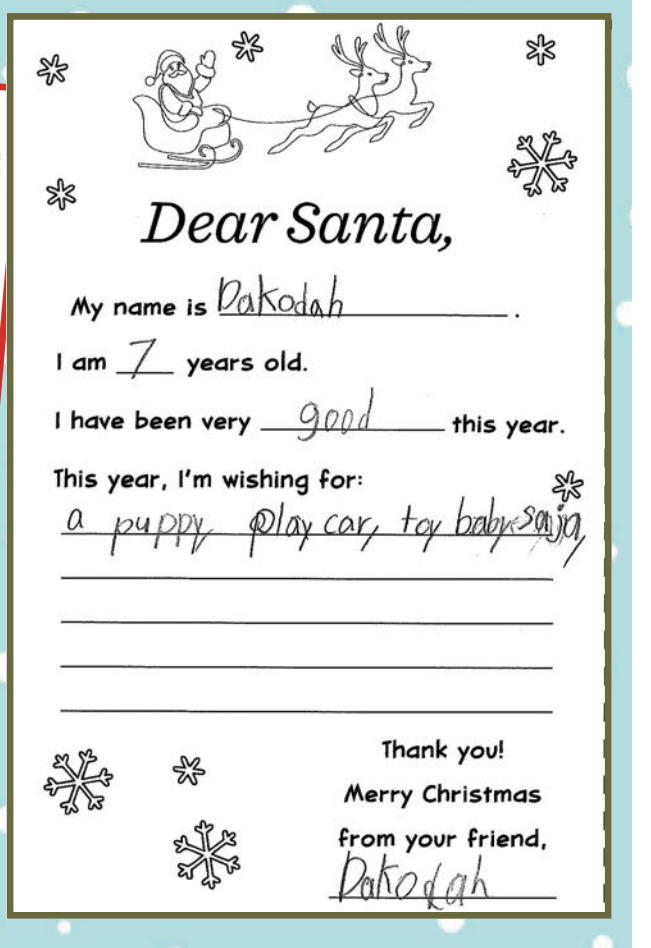 Dear Santa,
My name is Dakodah.
I am 7 years old.
I have been very good this year.
This year, I'm wishing for:
a puppy, play car, toy baby,
Thank you!
Merry Christmas
from your friend,
Dakodah